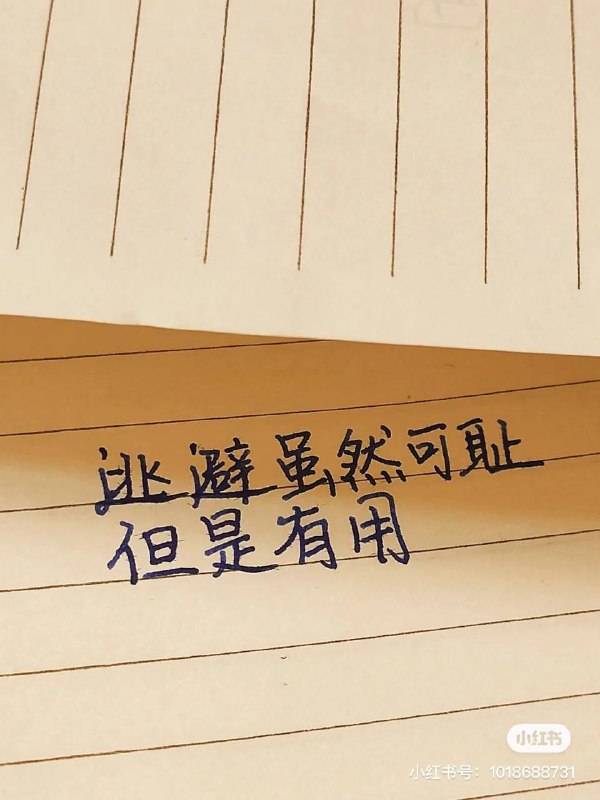 逃避虽然可耻
但是有用
小红书
小红书号：1018688731